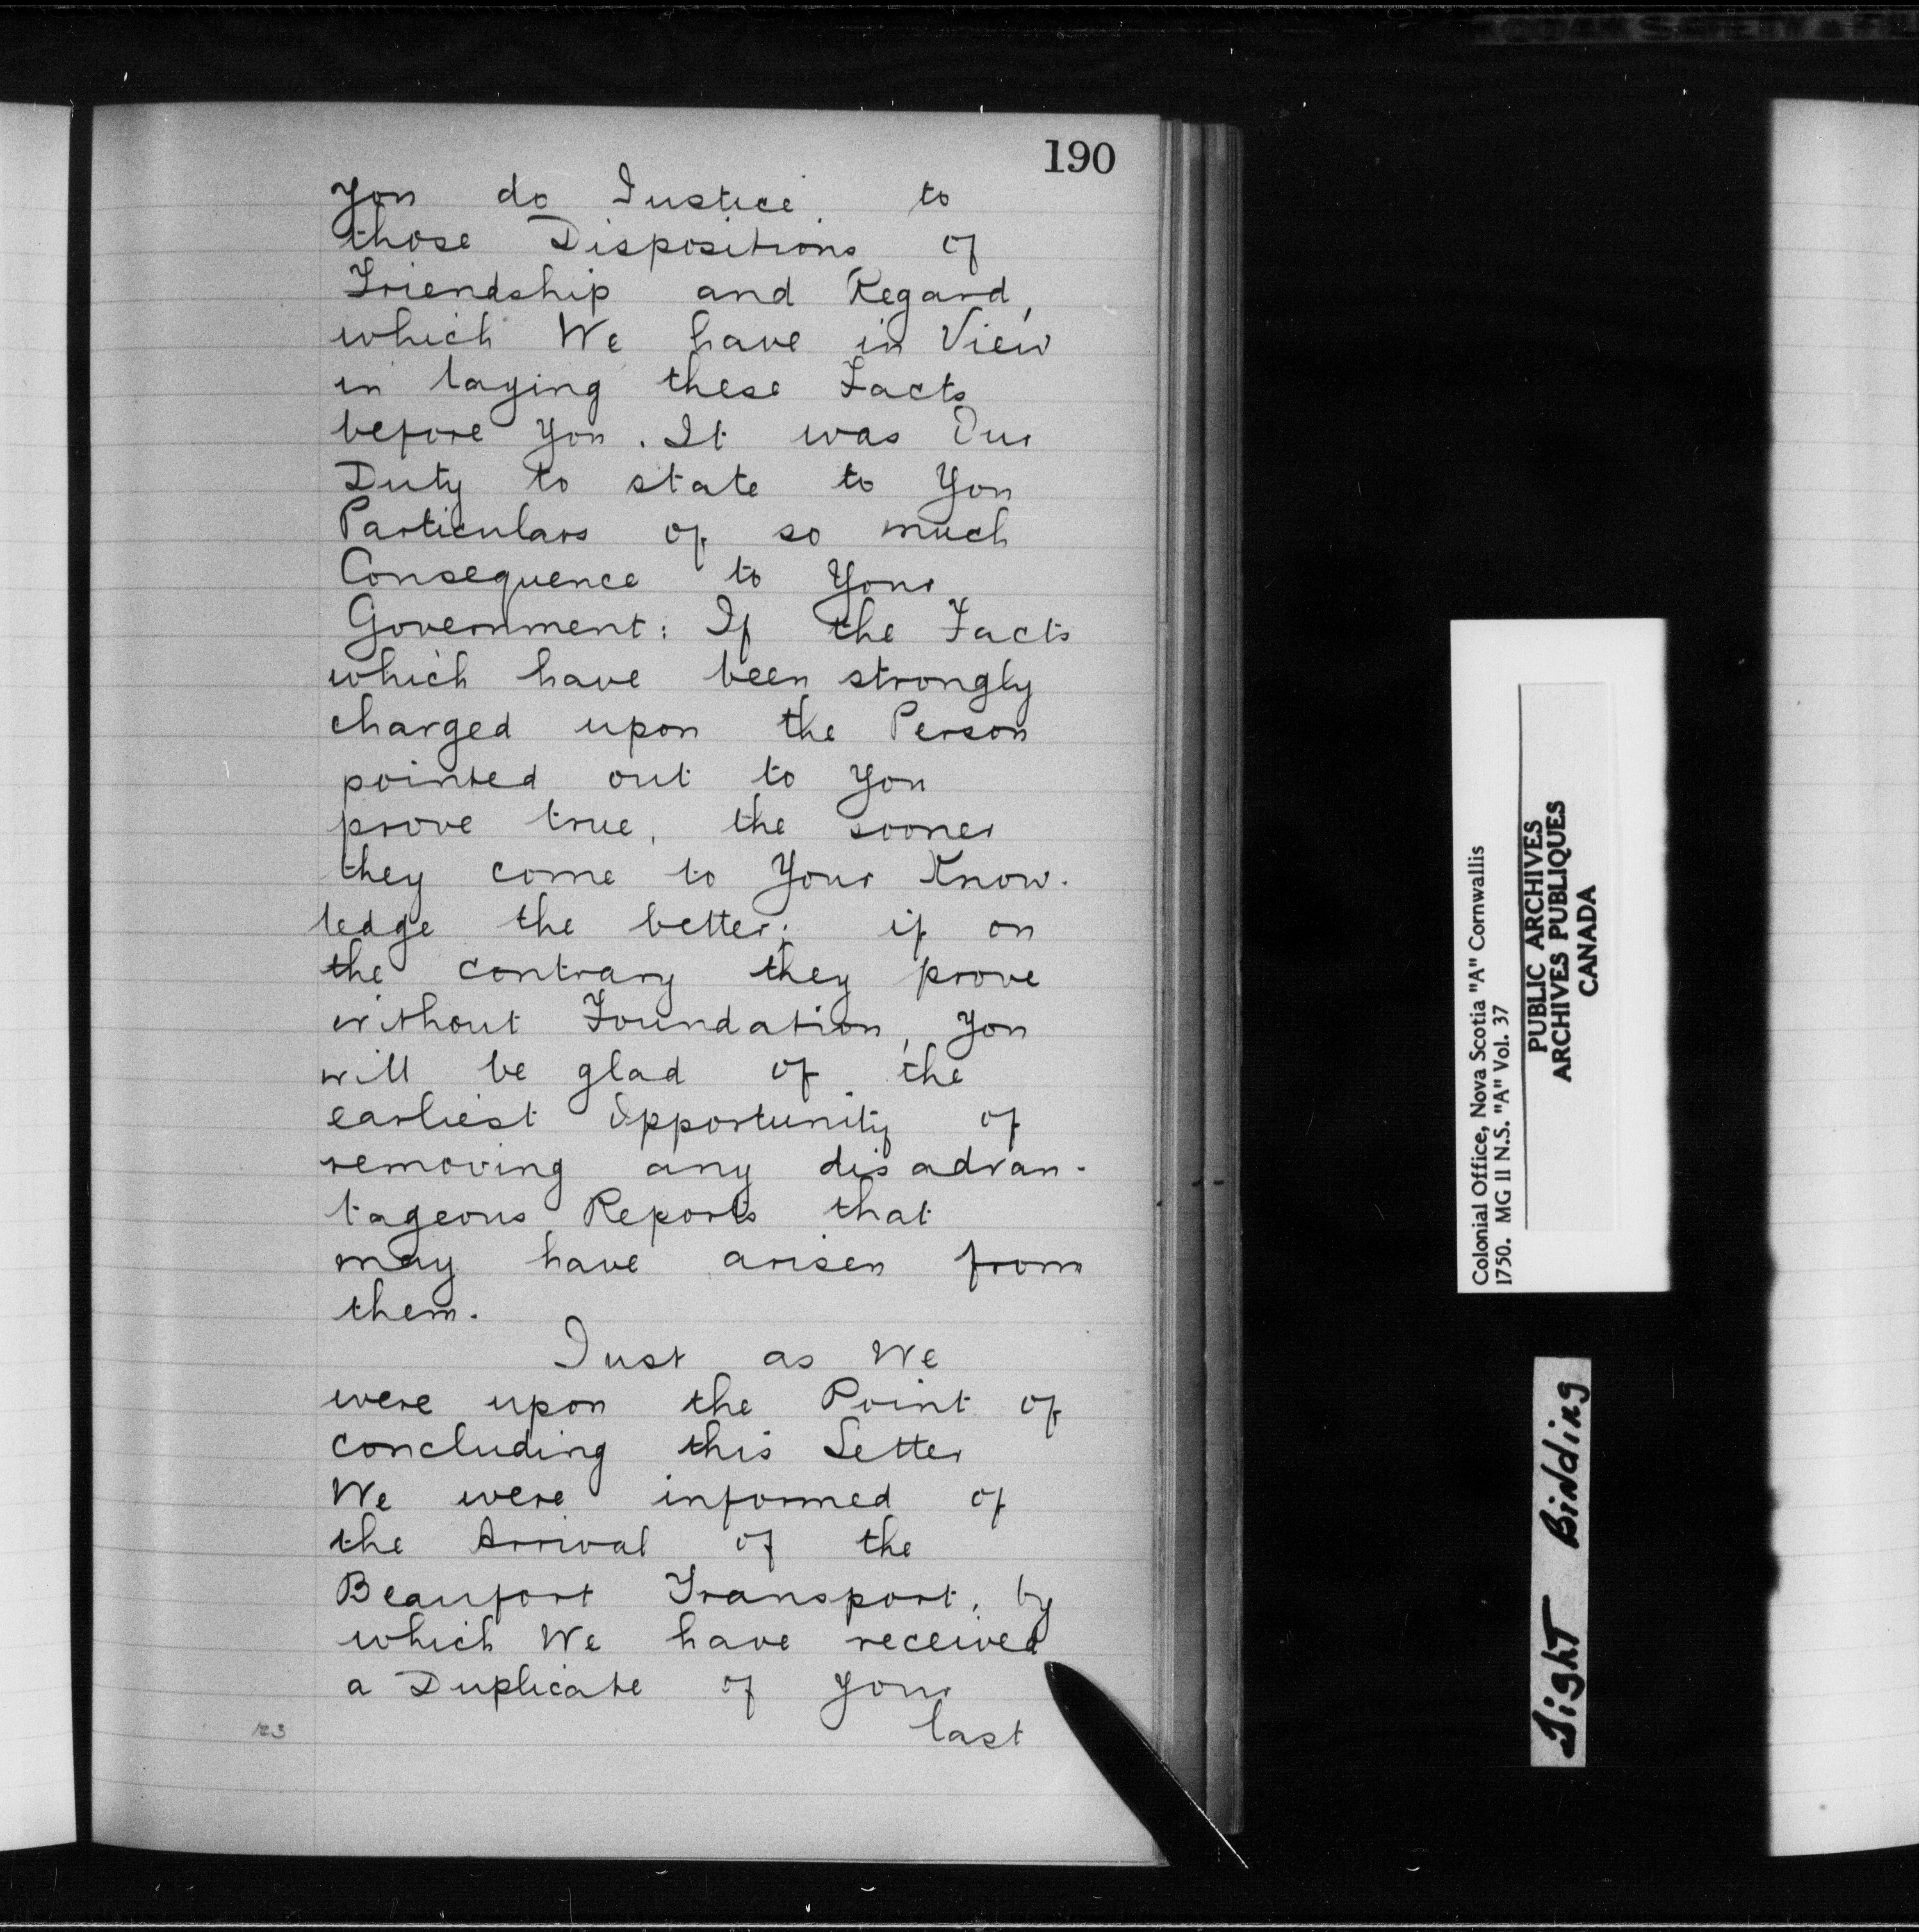 190
you do Justice to
those Dispositions of
Friendship and Regard,
which We have in View
in laying these Facts
before you. It was Our
Duty to state to You
Particulars of so much
Consequence to Your
Government: If the Facts
which have been strongly
charged upon the Person
pointed out to you
prove true, the sooner
they come to Your Know-
ledge the better; if on
the contrary they prove
without Foundation, you
will be glad of the
earliest Opportunity of
removing any disadvan-
tageous Reports that
may have arisen from
them.
Just as We
were upon the Point of
concluding this Letter
We were informed of
the Arrival of the
Beaufort Transport, by
which We have received
a Duplicate of your
last
123
Colonial Office, Nova Scotia "A" Cornwallis
1750. MG 11 N.S. "A" Vol. 37
PUBLIC ARCHIVES
ARCHIVES PUBLIQUES
CANADA
Tight Binding